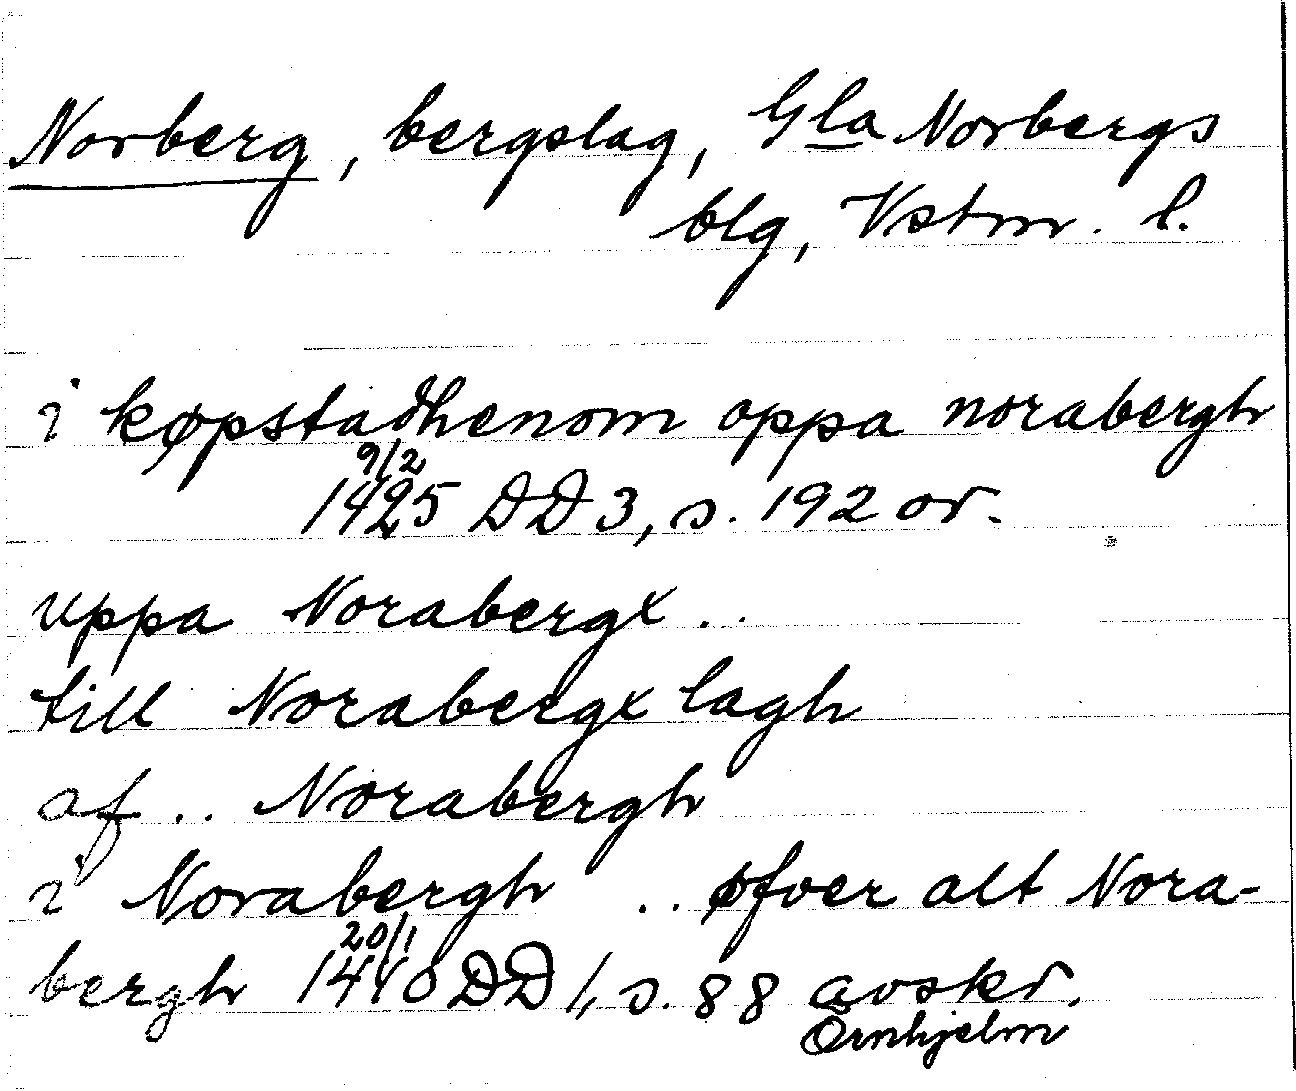 Norberg, bergslag, Gla Norbergs
blg, Vstm. l.
i køpstadhenom oppa norabergh
9/2
1425 DD 3, s. 192 or.
uppa Norabergx ..
till Norabergx lagh
af .. Norabergh
i Norabergh .. øfver alt Nora-
20/1
bergh 1440 DD 1, s. 88 avskr.
Örnhjelm